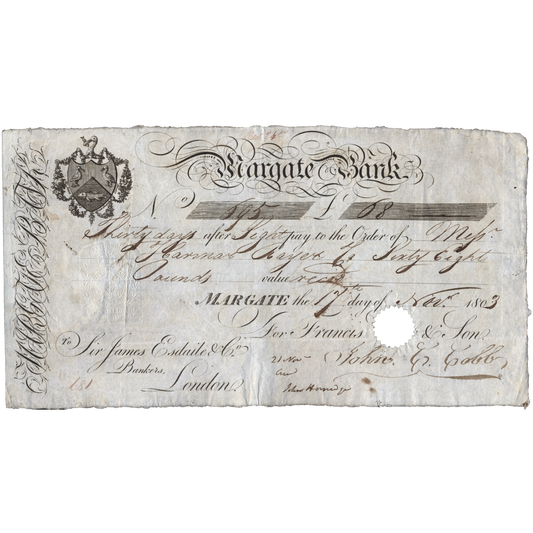 Margate Bank
No 595 £ 68
Thirty days after Sight pay to the Order of Messrs
Harman Sixty Eight
Pounds value recd
MARGATE the 17th day of Novr 1803
For Francis & Son
To Sir James Esdaile & Co.
Bankers,
London.
21 Nov
John F. Cobb